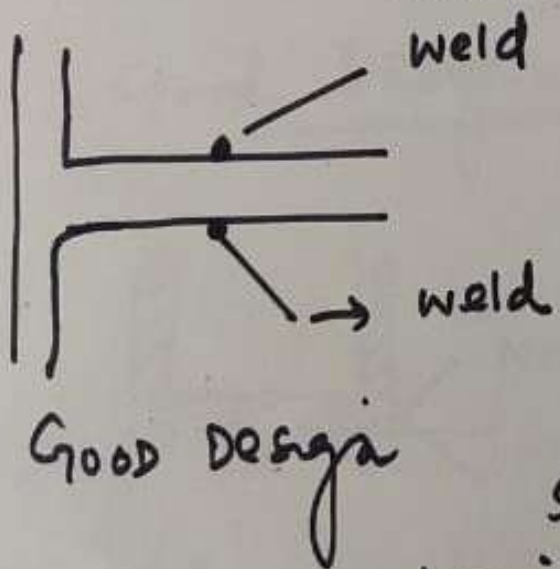 weld
weld
GOOD Design